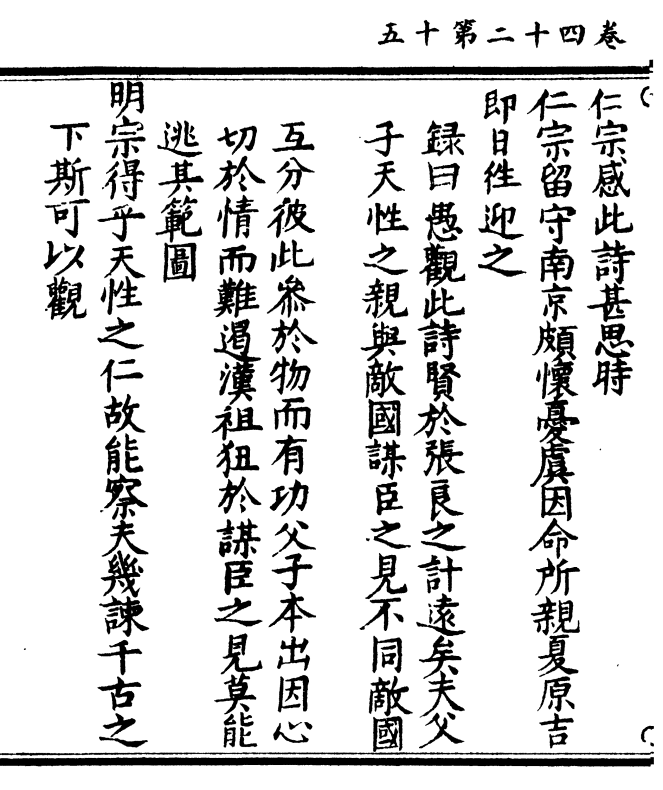 卷四十二第十五
仁宗感此詩甚思時
仁宗留守南京頗懷憂虞因命所親夏原吉
即日徃迎之
録曰愚觀此詩賢於張良之計遠矣夫父
子天性之親與敵國謀臣之見不同敵國
互分彼此叅於物而有功父子本出因心
切於情而難遏漢祖狃於謀臣之見莫能
逃其範圖
明宗得乎天性之仁故能察夫幾諫千古之
下斯可以觀